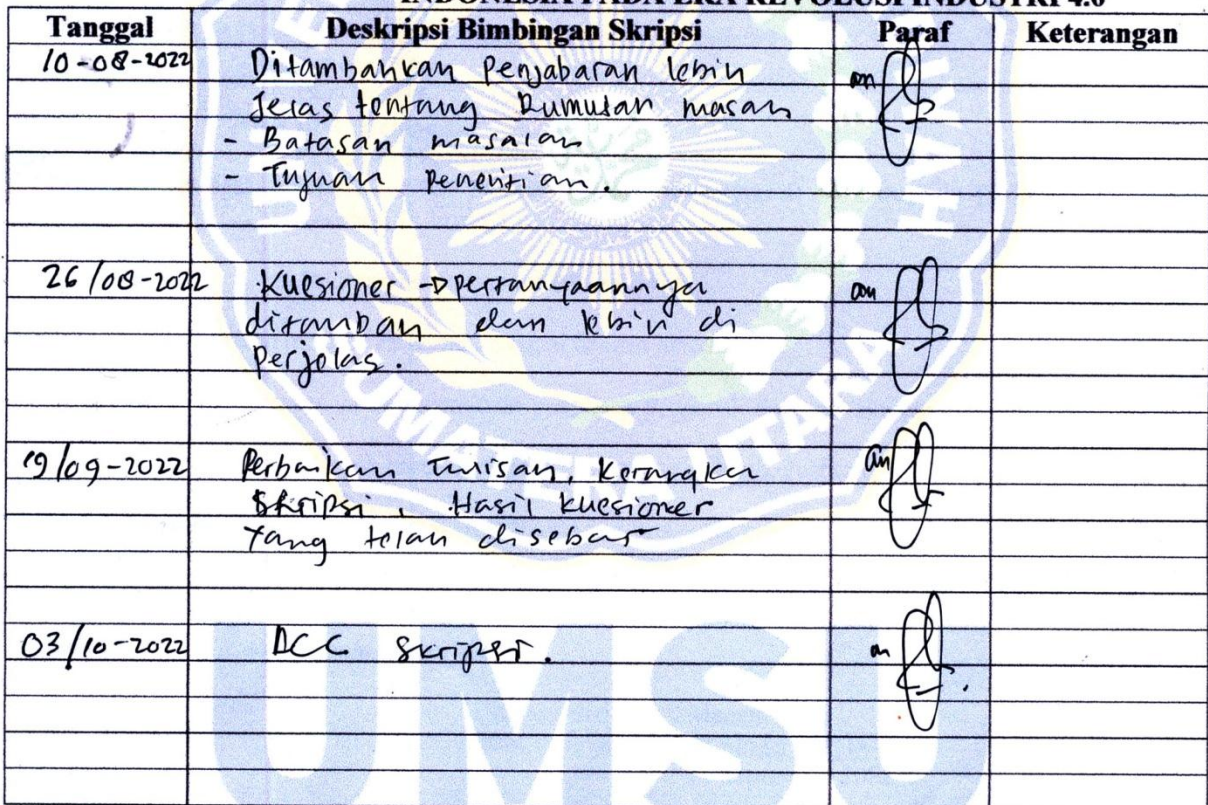 INDONESIA PADA ERA REVOLUSI INDUSTRI 4.0
Tanggal Deskripsi Bimbingan Skripsi Paraf Keterangan
10-08-2022 Ditambahkan Penjabaran lebih an
Jelas tentang Rumusan masalah
- Batasan masalah
- Tujuan Penelitian.
26/08-2022 Kuesioner → pertanyaannya an
ditambah dan lebih di
Perjelas.
19/09-2022 Perbaikan Tulisan, Kerangka an
Skripsi, Hasil kuesioner
Yang telah disebar
03/10-2022 ACC Skripsi. an
SUMATERA UTARA
UMSU